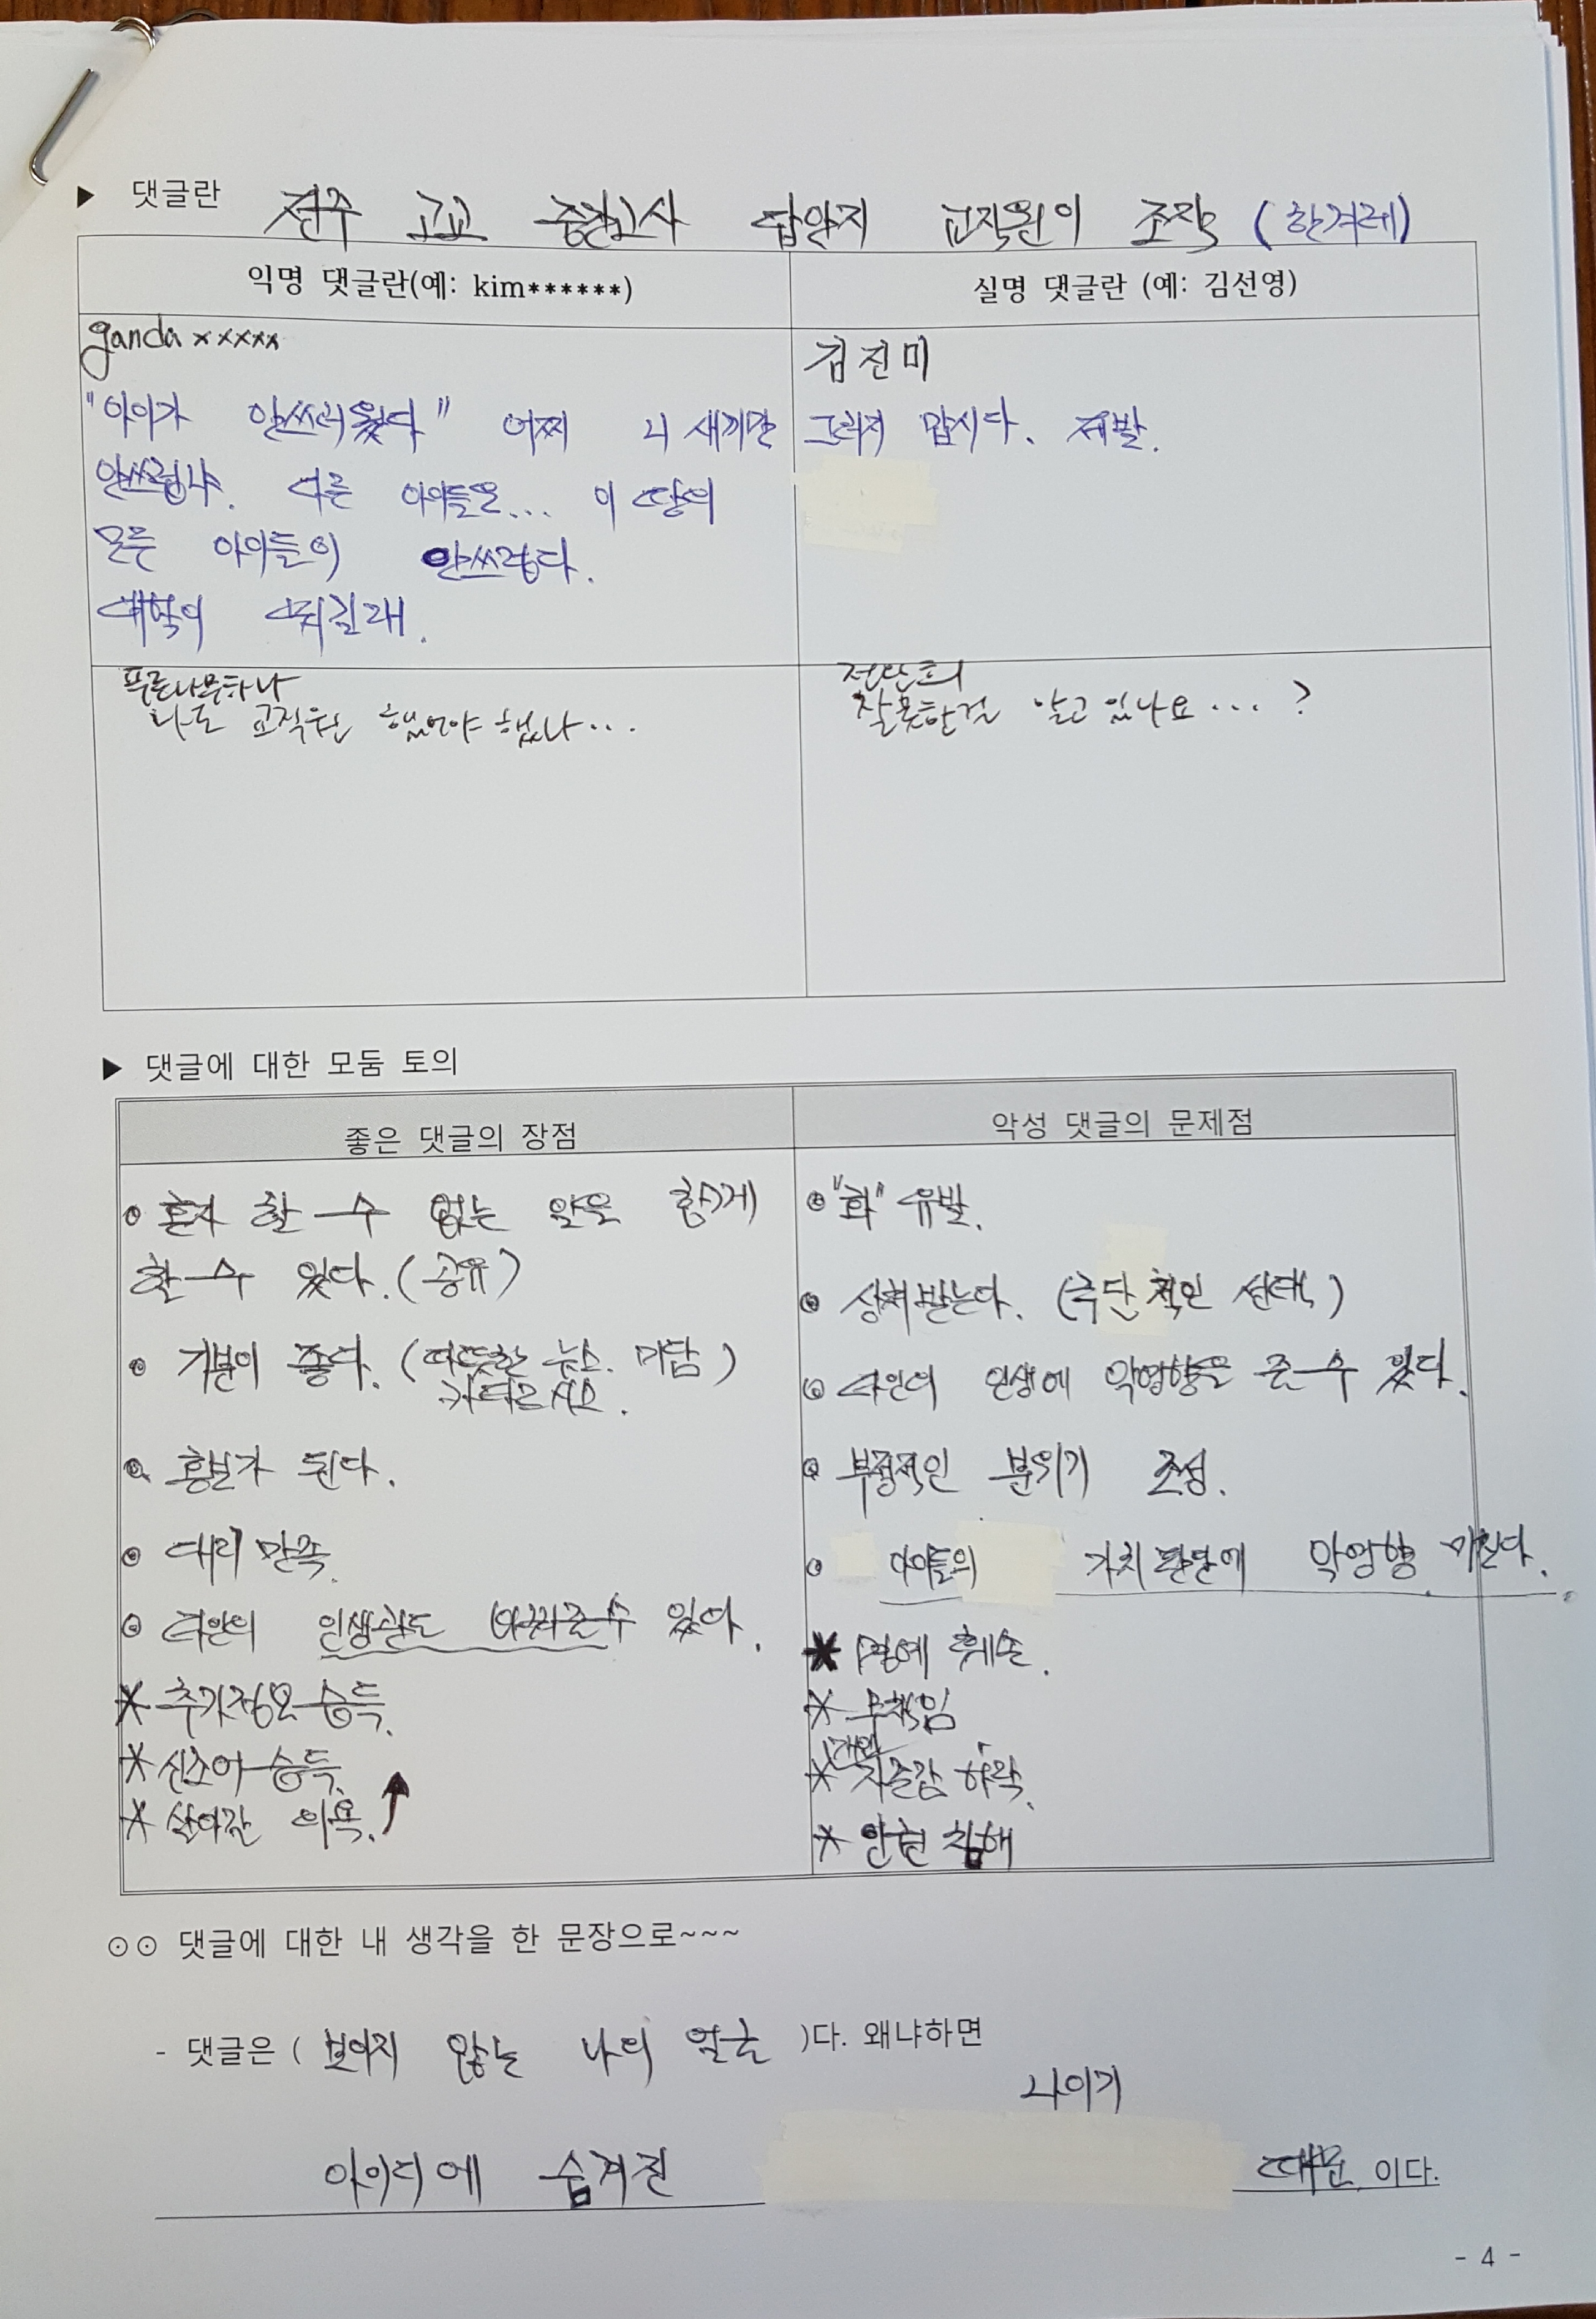 ▶ 댓글란 전주 고교 중간고사 답안지 교직원이 조작 (한겨레)
익명 댓글란(예: kim******)
실명 댓글란 (예: 김선영)
ganda×××××
"아이가 안쓰러웠다" 어찌 니 새끼만
안쓰럽냐. 다른 아이들은... 이 땅의
모든 아이들이 안쓰럽다.
대학이 뭐길래.
김진미
그러지 맙시다. 제발.
푸른나무하나
나도 교직원 했어야 했나...
전만희
잘못한걸 알고 있나요...?
▶ 댓글에 대한 모둠 토의
좋은 댓글의 장점
악성 댓글의 문제점
혼자 할 수 없는 일을 함께
할 수 있다. (공유)
기분이 좋다. (따뜻한 뉴스. 미담)
카타르시스.
홍보가 된다.
대리 만족.
타인의 인생관도 바꿔줄 수 있다.
* 추가정보 습득.
* 신조어 습득.
* 살아갈 의욕. ↑
"화" 유발.
상처받는다. (극단적인 선택)
타인의 인생에 악영향을 줄 수 있다.
부정적인 분위기 조성.
아이들의 가치판단에 악영향 미친다.
* 명예 훼손.
* 무책임
개인
* 자존감 하락.
* 인권 침해
⊙⊙ 댓글에 대한 내 생각을 한 문장으로~~~
- 댓글은 ( 보이지 않는 나의 얼굴 )다. 왜냐하면
나이기
아이디에 숨겨진 때문 이다.
- 4 -